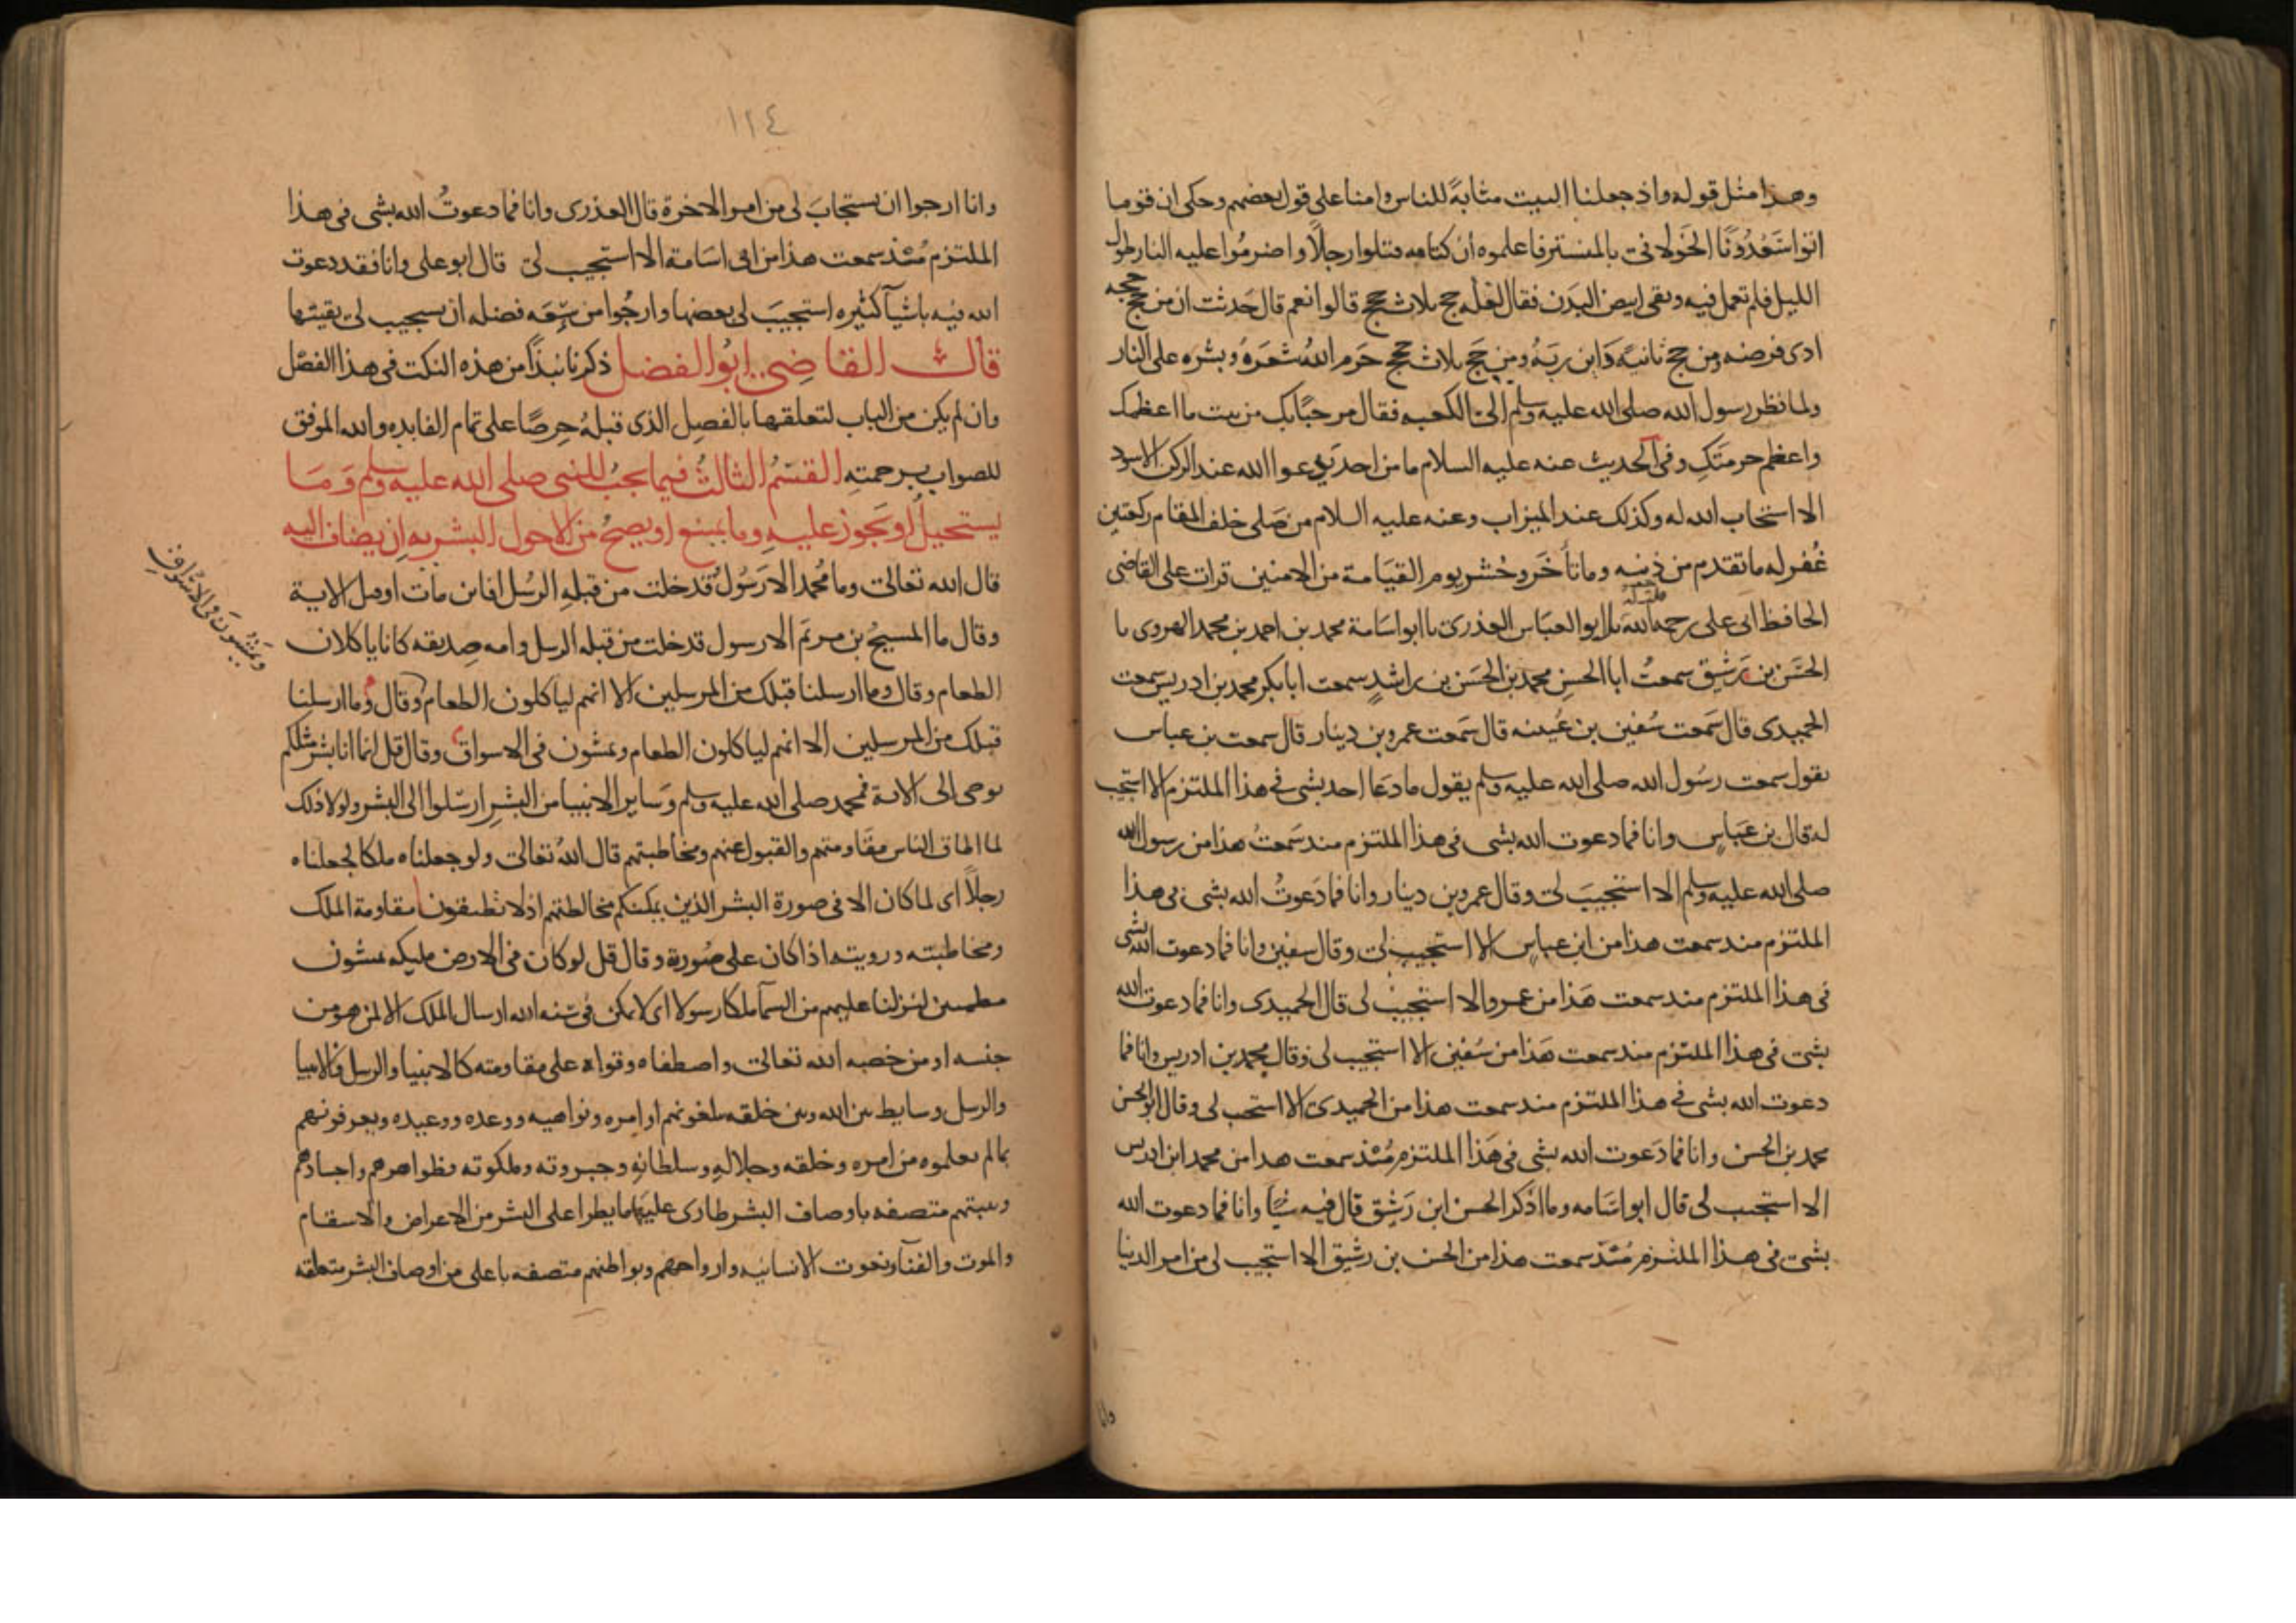 وهذا مثل قوله واذ جعلنا البيت مثابةً للناس وامنا على قول بعضهم وحكى ان قوما
اتوا سَعْدُونًا الخَولانى بالمنستير فاعلموه ان كتامه قتلوا رجلًا واضرمُوا عليه النار طول
الليل فلم تعمل فيه وبقى ابيض البدن فقال لعله حج ثلاث حجج قالوا نعم قال حَدثت ان من حج حجه
ادى فرضه ومن حج ثانيةً دَاين ربَهُ ومن حَج ثلاث حجج حَرم اللهُ شعَرهُ وبشره على النار
ولما نظر رسول الله صلى الله عليه وسلم الى الكعبه فقال مرحبًا بك من بيت ما اعظمك
واعظم حرمتَكِ وفى الحديث عنه عليه السلام ما من احد يدعوا الله عند الركن الاسود
الا استجاب الله له وكذلك عند الميزاب وعنه عليه السلام من صَلى خلف المقام ركعتين
غُفر له ما تقدم من ذنبه وما تأخَر وحُشر يوم القيَامة من الامنين قرات على القاضى
الحافظ ابى على رحمه الله نا ابو العبَاس العذرى نا ابو اسَامة محمد بن احمد بن محمد الهروى نا
الحسَن بن رَشيِق سمعتُ ابا الحسن محمد بن الحسَن بن راشدٍ سمعت ابا بكر محمد بن ادريس سمعت
الحميدى قال سَمعت سُفين بن عُيينه قال سَمعت عمرو بن دينار قال سمعت بن عباس
يقول سمعت رسُول الله صلى الله عليه وسلم يقول ما دعَا احد بشى فى هذا الملتزم الا استجيب
له قال بن عبَاس وانا فما دعوت الله بشى فى هذا الملتزم منذ سَمعتُ هذا من رسول الله
صلى الله عليه وسلم الا استجيبَ لى وقال عمرو بن دينار وانا فما دَعوتُ الله بشى فى هذا
الملتزم منذ سمعت هذا من ابن عباس الا استجيب لى وقال سفين وانا فما دعوت الله بشى
فى هذا الملتزم منذ سمعت هَذا من عمرو الا استجيبْ لى قال الحميدى وانا فما دعوت الله
بشى فى هذا الملتزم منذ سمعت هَذا من سُفين الا استجيب لى وقال محمد بن ادريس وانا فما
دعوت الله بشى فى هذا الملتزم منذ سمعت هذا من الحميدى الا استجيب لى وقال ابو الحسن
محمد بن الحسن وانا فما دَعوت الله بشى فى هَذا الملتزم مُنْذ سمعت هذا من محمد ابن ادريس
الا استجيب لى قال ابو اسَامه وما اذكر الحسن ابن رَشيِق قال فيه شيًا وانا فما دعوت الله
بشى فى هذا الملتزم مُنْذ سمعت هذا من الحسن بن رشيق الا استجيب لى من امر الدنيا
وانا
١٢٤
وانا ارجوا ان يستجابَ لى من امر الاخرة قال العذرى وانا فما دعوتُ الله بشى فى هذا
الملتزم مُنْذ سمعت هذا من ابى اسَامة الا استجيب لى قال ابو على وانا فقد دعوت
الله فيه باشيآ كثيره استجيبَ لى بعضها وارجُوا من سِعَه فضله ان يستجيب لى بقيتها
قال القاضِى ابُو الفضل ذكرنا نبذًا من هذه النكت فى هذا الفصْل
وان لم يكن من الباب لتعلقها بالفصِل الذى قبلهُ حِرصًا على تمام الفايده والله الموفق
للصواب برحمتِهِ القسْمُ الثالثُ فيما يجبُ للنبى صلى الله عليه وسلم وَمَا
يستحيلُ او يَجوز عليهِ وما يمتنع او يصِحُ من الاحول البشريه اِن يضاف اليه
قال الله تعالى وما مُحمد الا رَسُولُ قدخلت من قبلهِ الرسُل افاين مات او قتل الاية
وقال ما المسيحُ بن مريَم الا رسول قدخلت من قبله الرسل وامه صِديقه كانا ياكلان
الطعام وقال وما ارسلنا قبلك من المرسلين الا انهم لياكلون الطعام وقال وما ارسلنا
ويمْشونَ فى الاسْواقِ
قبلك من المرسلين الا انهم لياكلون الطعام ويمشون فى الاسواق وقال قل انما انا بشر مثلكم
يوحى الى الاية فمحمد صلى الله عليه وسلم وَساير الانبيا من البشرِ ارسْلوا الى البشر ولولا ذلك
لما اطاق الناس مقَاومتهم والقبول عنهم ومخَاطبتهم قال اللهُ تعالى ولو جعلناه ملكا لجعلناه
رجلًا اى لما كان الا فى صورة البشر الذين يمكنكم مخالطتهم اذ لا تطيقون مقاومة الملك
ومخاطبته ورويته اذا كان على صُورته وقال قل لو كان فى الارض مليكه يمشون
مطمينين لنزلنا عليهم من السمآ ملكا رسولا اى لا يمكن فى سُنه الله ارسال الملك الا لمن هو من
جنسه او من خصه الله تعالى واصطفاه وقواه على مقاومته كالانبيا والرسل فالانبيا
والرسل وسايط بين الله وبين خلقه يبلغونهم اوامره ونواهيه ووعده ووعيده ويعرفونهم
بما لم يعلموه من امره وخلقه وجلالهِ وسلطانهِ وجبروته وملكوته فظواهرهم واجسادهم
وبنيتهم متصفه باوصاف البشر طارى عليَها ما يطرا على البشر من الاعراض والاسقام
والموت والفنآ ونعوت الانسانيه وارواحهم وبواطنهم متصفه باعلى من اوصاف البشر متعلقه